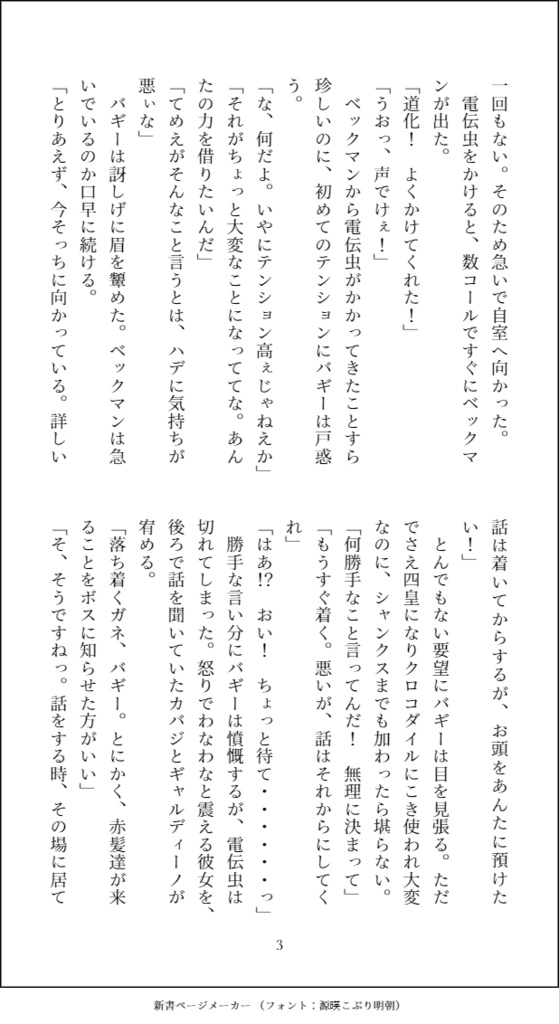 一回もない。そのため急いで自室へ向かった。
　電伝虫をかけると、数コールですぐにベックマ
ンが出た。
「道化！　よくかけてくれた！」
「うおっ、声でけぇ！」
　ベックマンから電伝虫がかかってきたことすら
珍しいのに、初めてのテンションにバギーは戸惑
う。
「な、何だよ。いやにテンション高ぇじゃねえか」
「それがちょっと大変なことになっててな。あん
たの力を借りたいんだ」
「てめえがそんなこと言うとは、ハデに気持ちが
悪ぃな」
　バギーは訝しげに眉を顰めた。ベックマンは急
いでいるのか口早に続ける。
「とりあえず、今そっちに向かっている。詳しい
話は着いてからするが、お頭をあんたに預けた
い！」
　とんでもない要望にバギーは目を見張る。ただ
でさえ四皇になりクロコダイルにこき使われ大変
なのに、シャンクスまでも加わったら堪らない。
「何勝手なこと言ってんだ！　無理に決まって」
「もうすぐ着く。悪いが、話はそれからにしてく
れ」
「はあ!?　おい！　ちょっと待て・・・・・・っ」
　勝手な言い分にバギーは憤慨するが、電伝虫は
切れてしまった。怒りでわなわなと震える彼女を、
後ろで話を聞いていたカバジとギャルディーノが
宥める。
「落ち着くガネ、バギー。とにかく、赤髪達が来
ることをボスに知らせた方がいい」
「そ、そうですねっ。話をする時、その場に居て
3
新書ページメーカー（フォント：源暎こぶり明朝）